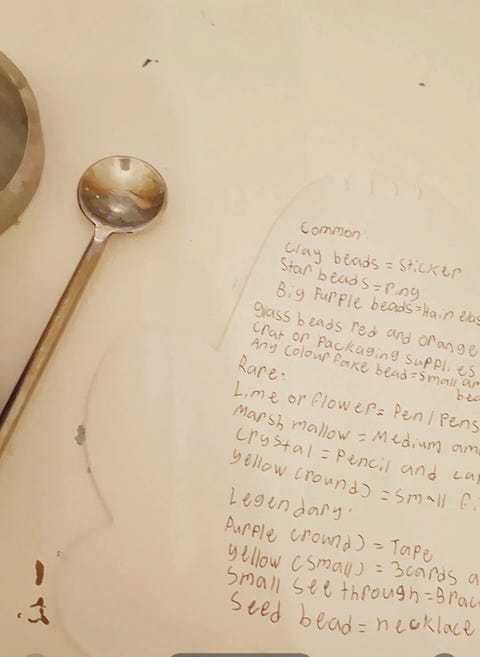 Common:
Clay beads = Sticker
Star beads = ring
Big Purple beads = Hair elas
glass beads red and orange
crat or packaging supplies
Any colour fake bead = small am
bea
Rare:
Lime or flower = Pen / Pens
Marsh mallow = Medium am
crystal = Pencil and
yellow (round) = small fi
Legendary:
Purple (round) = Tape
yellow (small) = 3 cards a
Small see through = Brac
Seed bead = necklace